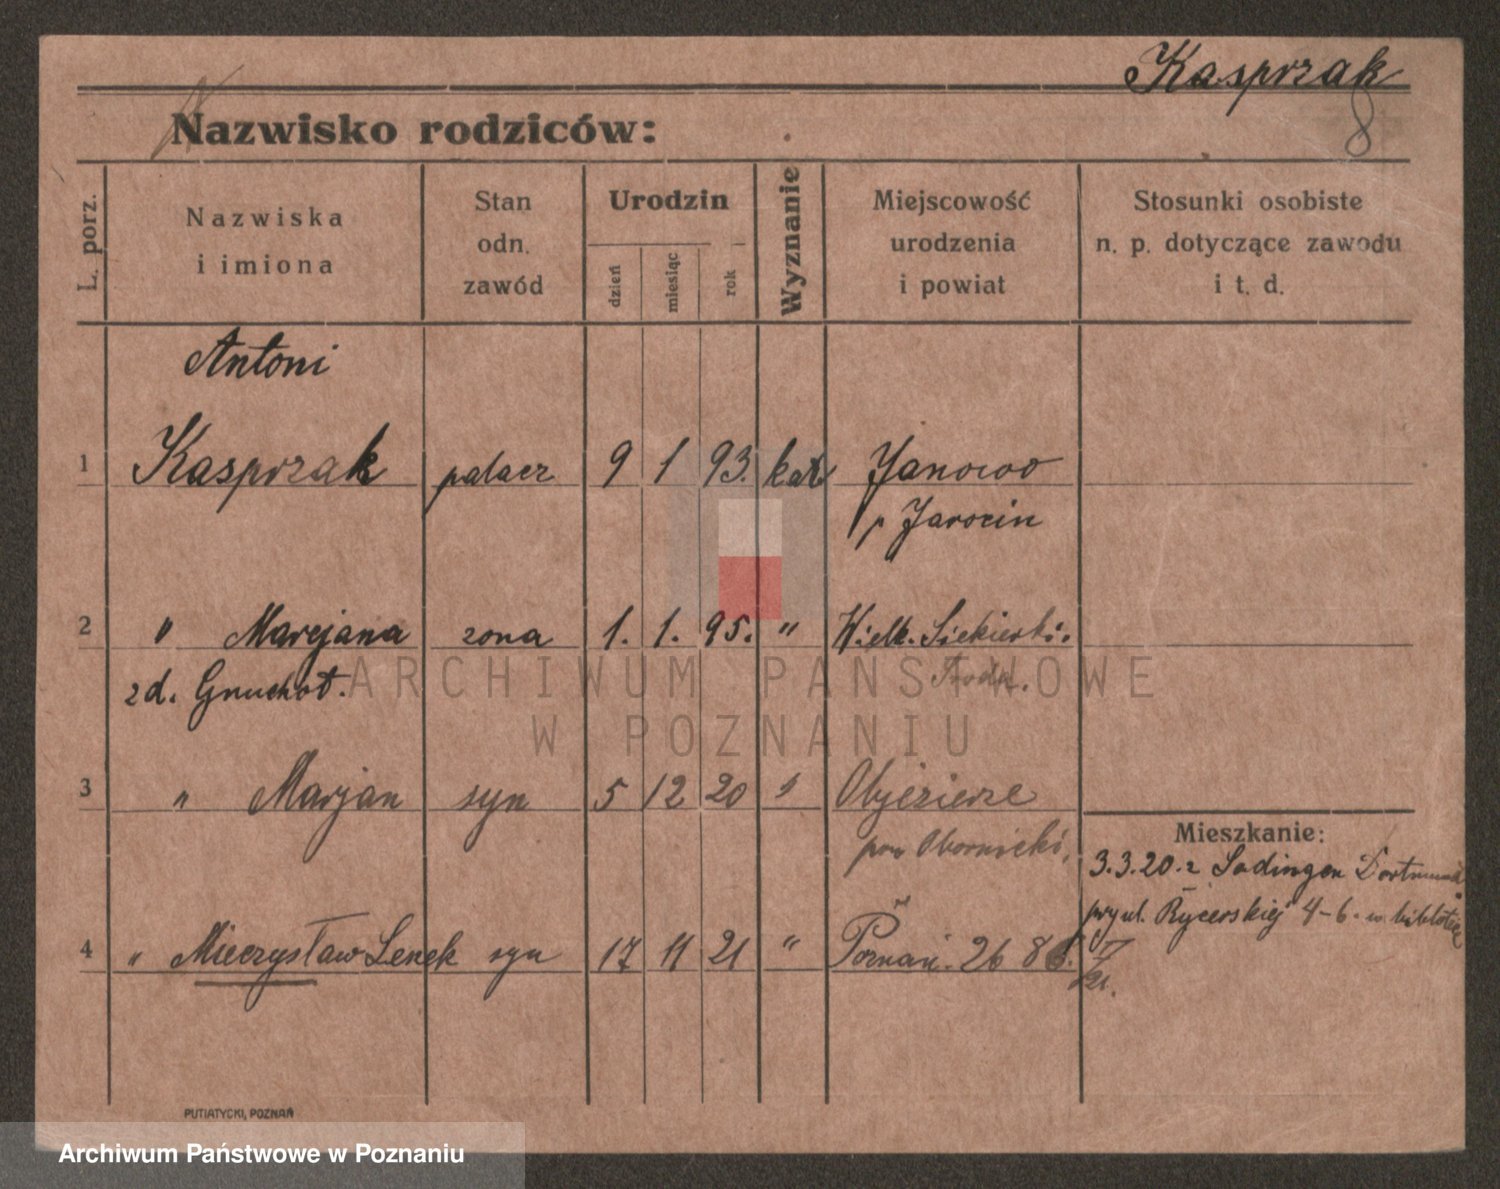 Kasprzak
8
Nazwisko rodziców:
L. porz.
Nazwiska i imiona
Stan odn. zawód
Urodzin
dzień
miesiąc
rok
Wyznanie
Miejscowość urodzenia i powiat
Stosunki osobiste n. p. dotyczące zawodu i t. d.
Antoni
1 Kasprzak palacz 9 1 93. kat. Janowo
p Jarocin
2 " Marjana żona 1. 1. 95. " Wielk. Siekierki.
zd. Gnuchot. Środa.
ARCHIWUM PAŃSTWOWE
W POZNANIU
3 " Marjan syn 5 12 20 " Objezierze
pow Obornicki,
Mieszkanie:
3.3.20. z Lodingen Dortmund
przy ul. Rycerskiej 4-6. w
4 " Mieczysław Lenek syn 17 11 21 " Poznań. 26 86.
PUTIATYCKI, POZNAŃ
Archiwum Państwowe w Poznaniu